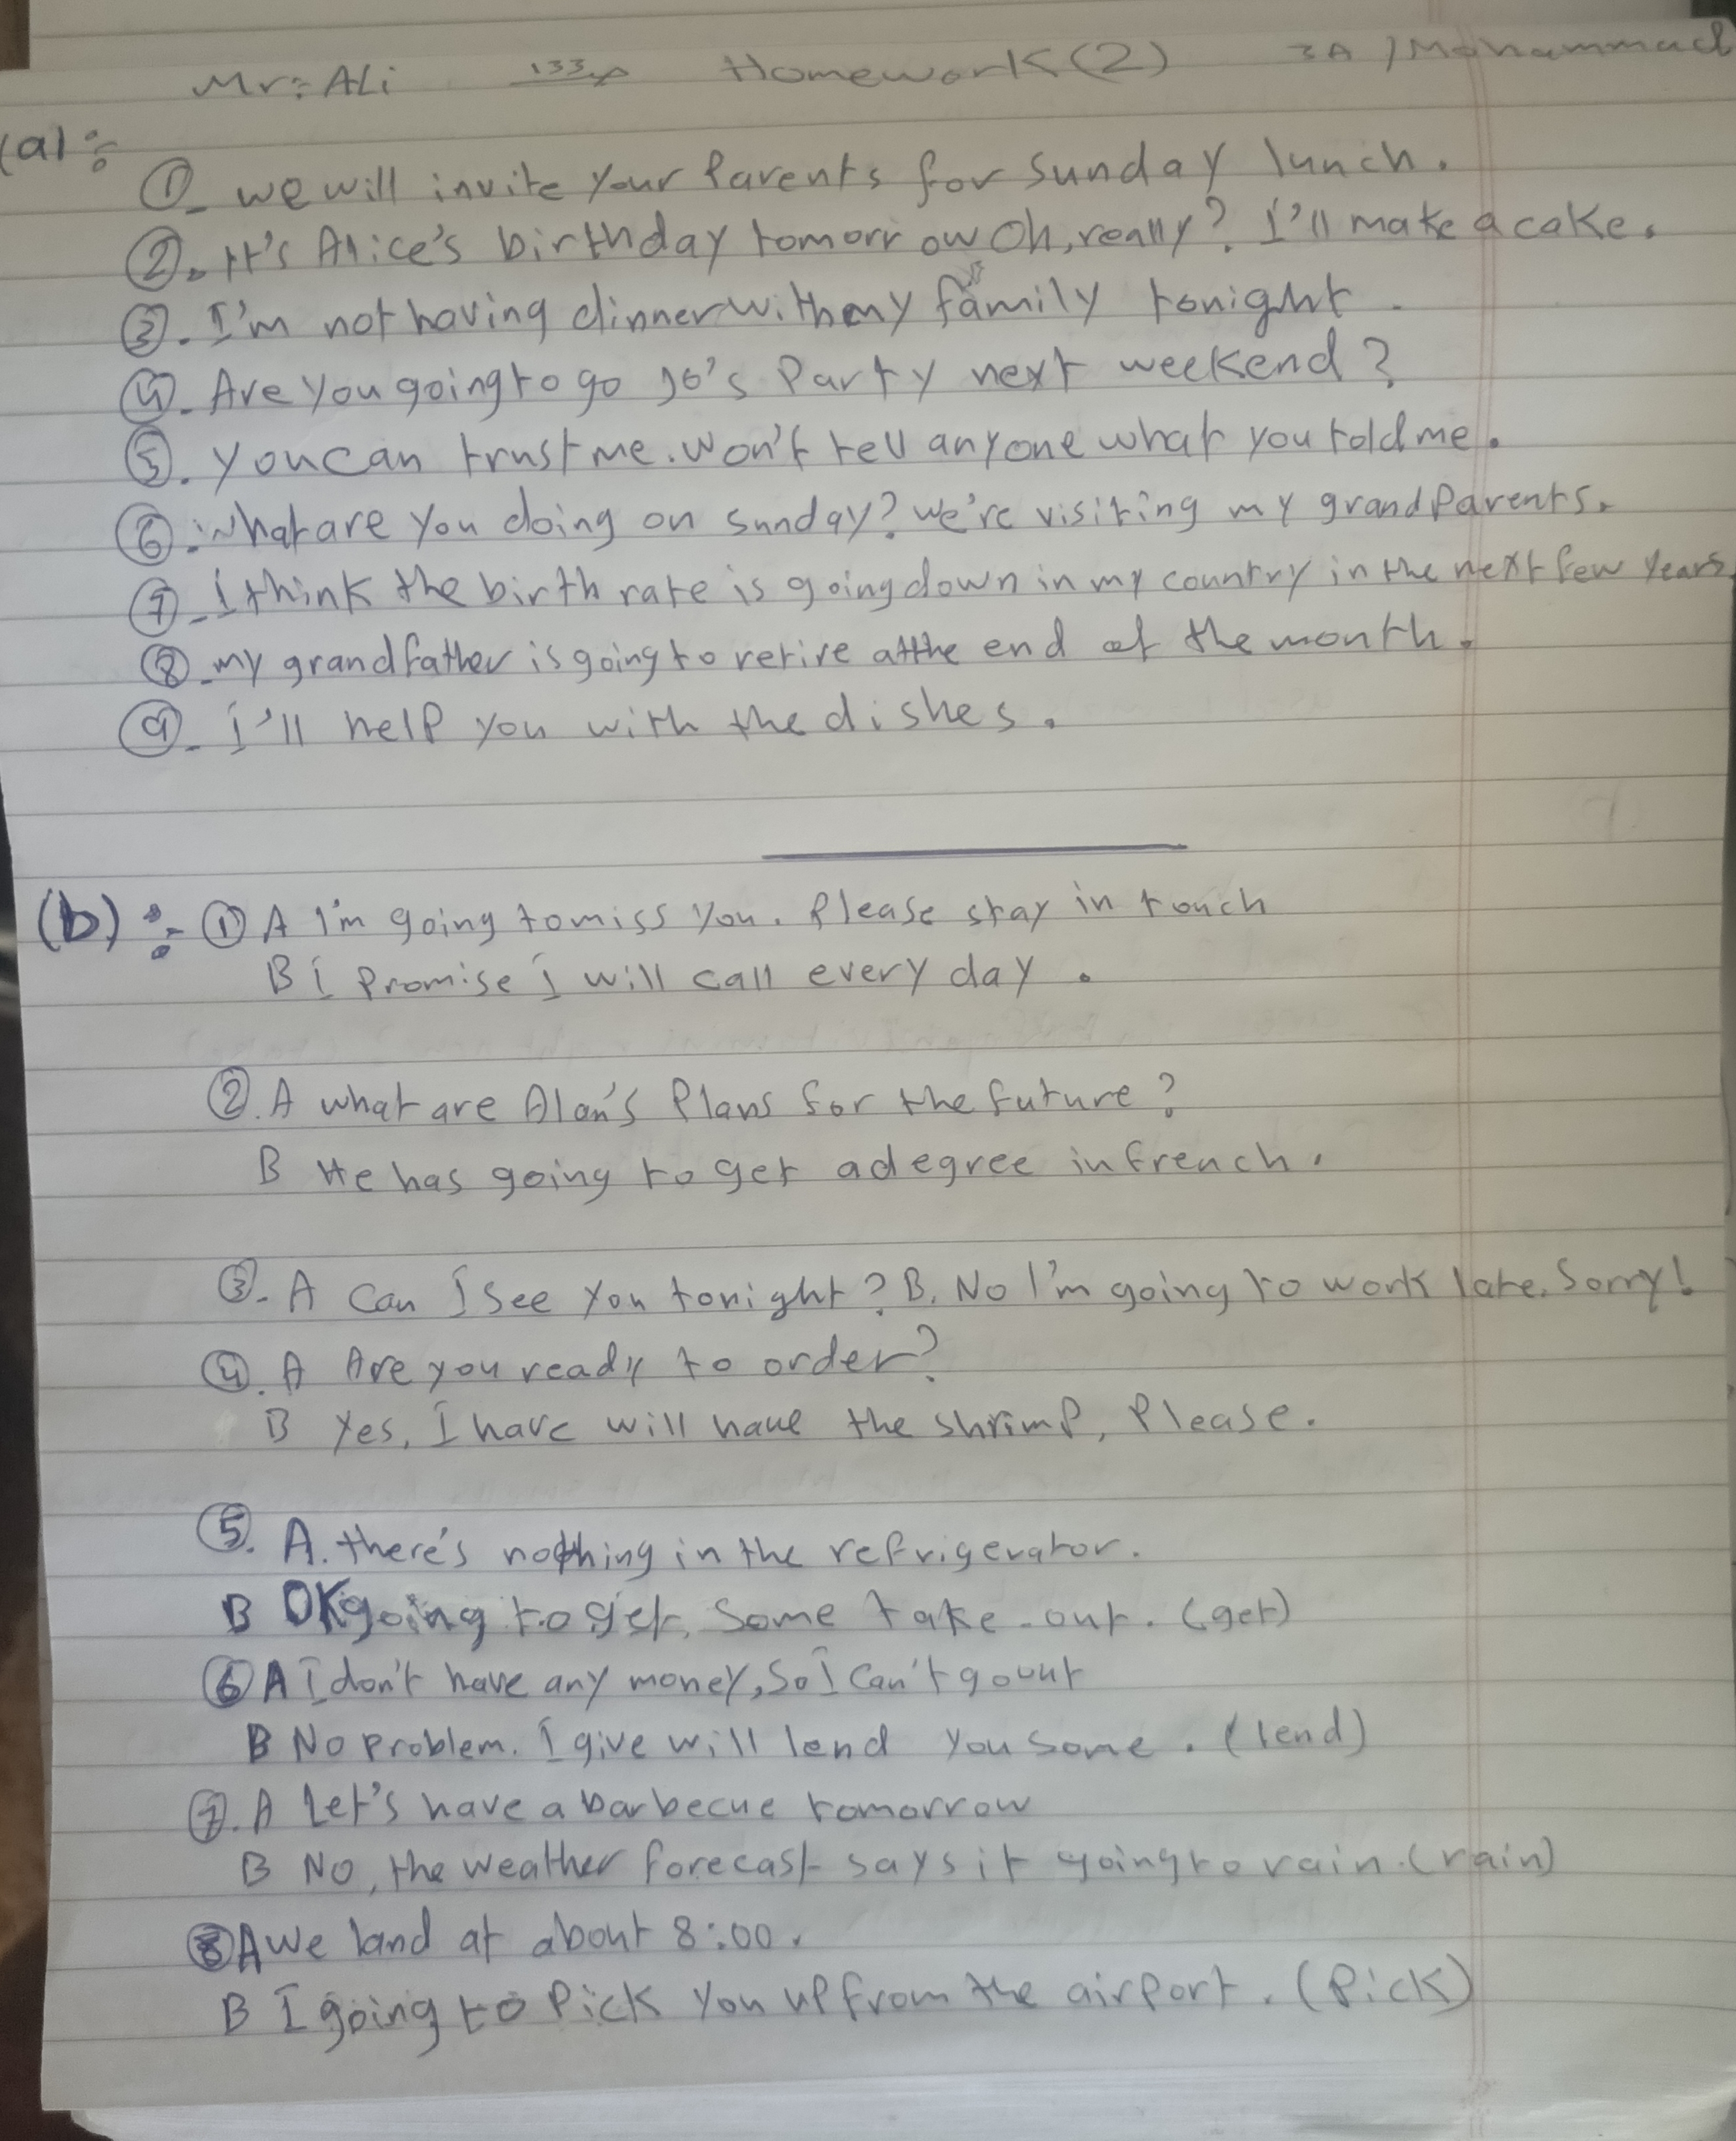 Mr: Ali 133p Homework (2) 3A / Mohammad
(a):
① we will invite your Parents for sunday lunch.
②. It's Alice's birthday tomorrow Oh, really? I'll make a cake.
③. I'm not having dinner with my family tonight.
④. Are you going to go Jo's Party next weekend?
⑤. you can trust me. won't tell anyone what you told me.
⑥. What are you doing on sunday? we're visiting my grandParents.
⑦- I think the birth rate is going down in my country in the next few years
⑧- my grandfather is going to retire at the end of the month.
⑨- I'll help you with the dishes.
(b):- ① A I'm going to miss you. Please stay in touch
B I Promise I will call every day.
②. A what are Alan's Plans for the future?
B He has going to get a degree in french.
③- A Can I see you tonight? B. No I'm going to work late. Sorry!
④. A Are you ready to order?
B Yes, I have will have the shrimp, Please.
⑤. A. there's nothing in the refrigerator.
B OK going to get, some take-out. (get)
⑥ A I don't have any money, So I can't go out
B No problem. I give will lend you some. (lend)
⑦. A Let's have a barbecue tomorrow
B No, the weather forecast says it going to rain. (rain)
⑧ A we land at about 8:00.
B I going to Pick you up from the airport. (Pick)